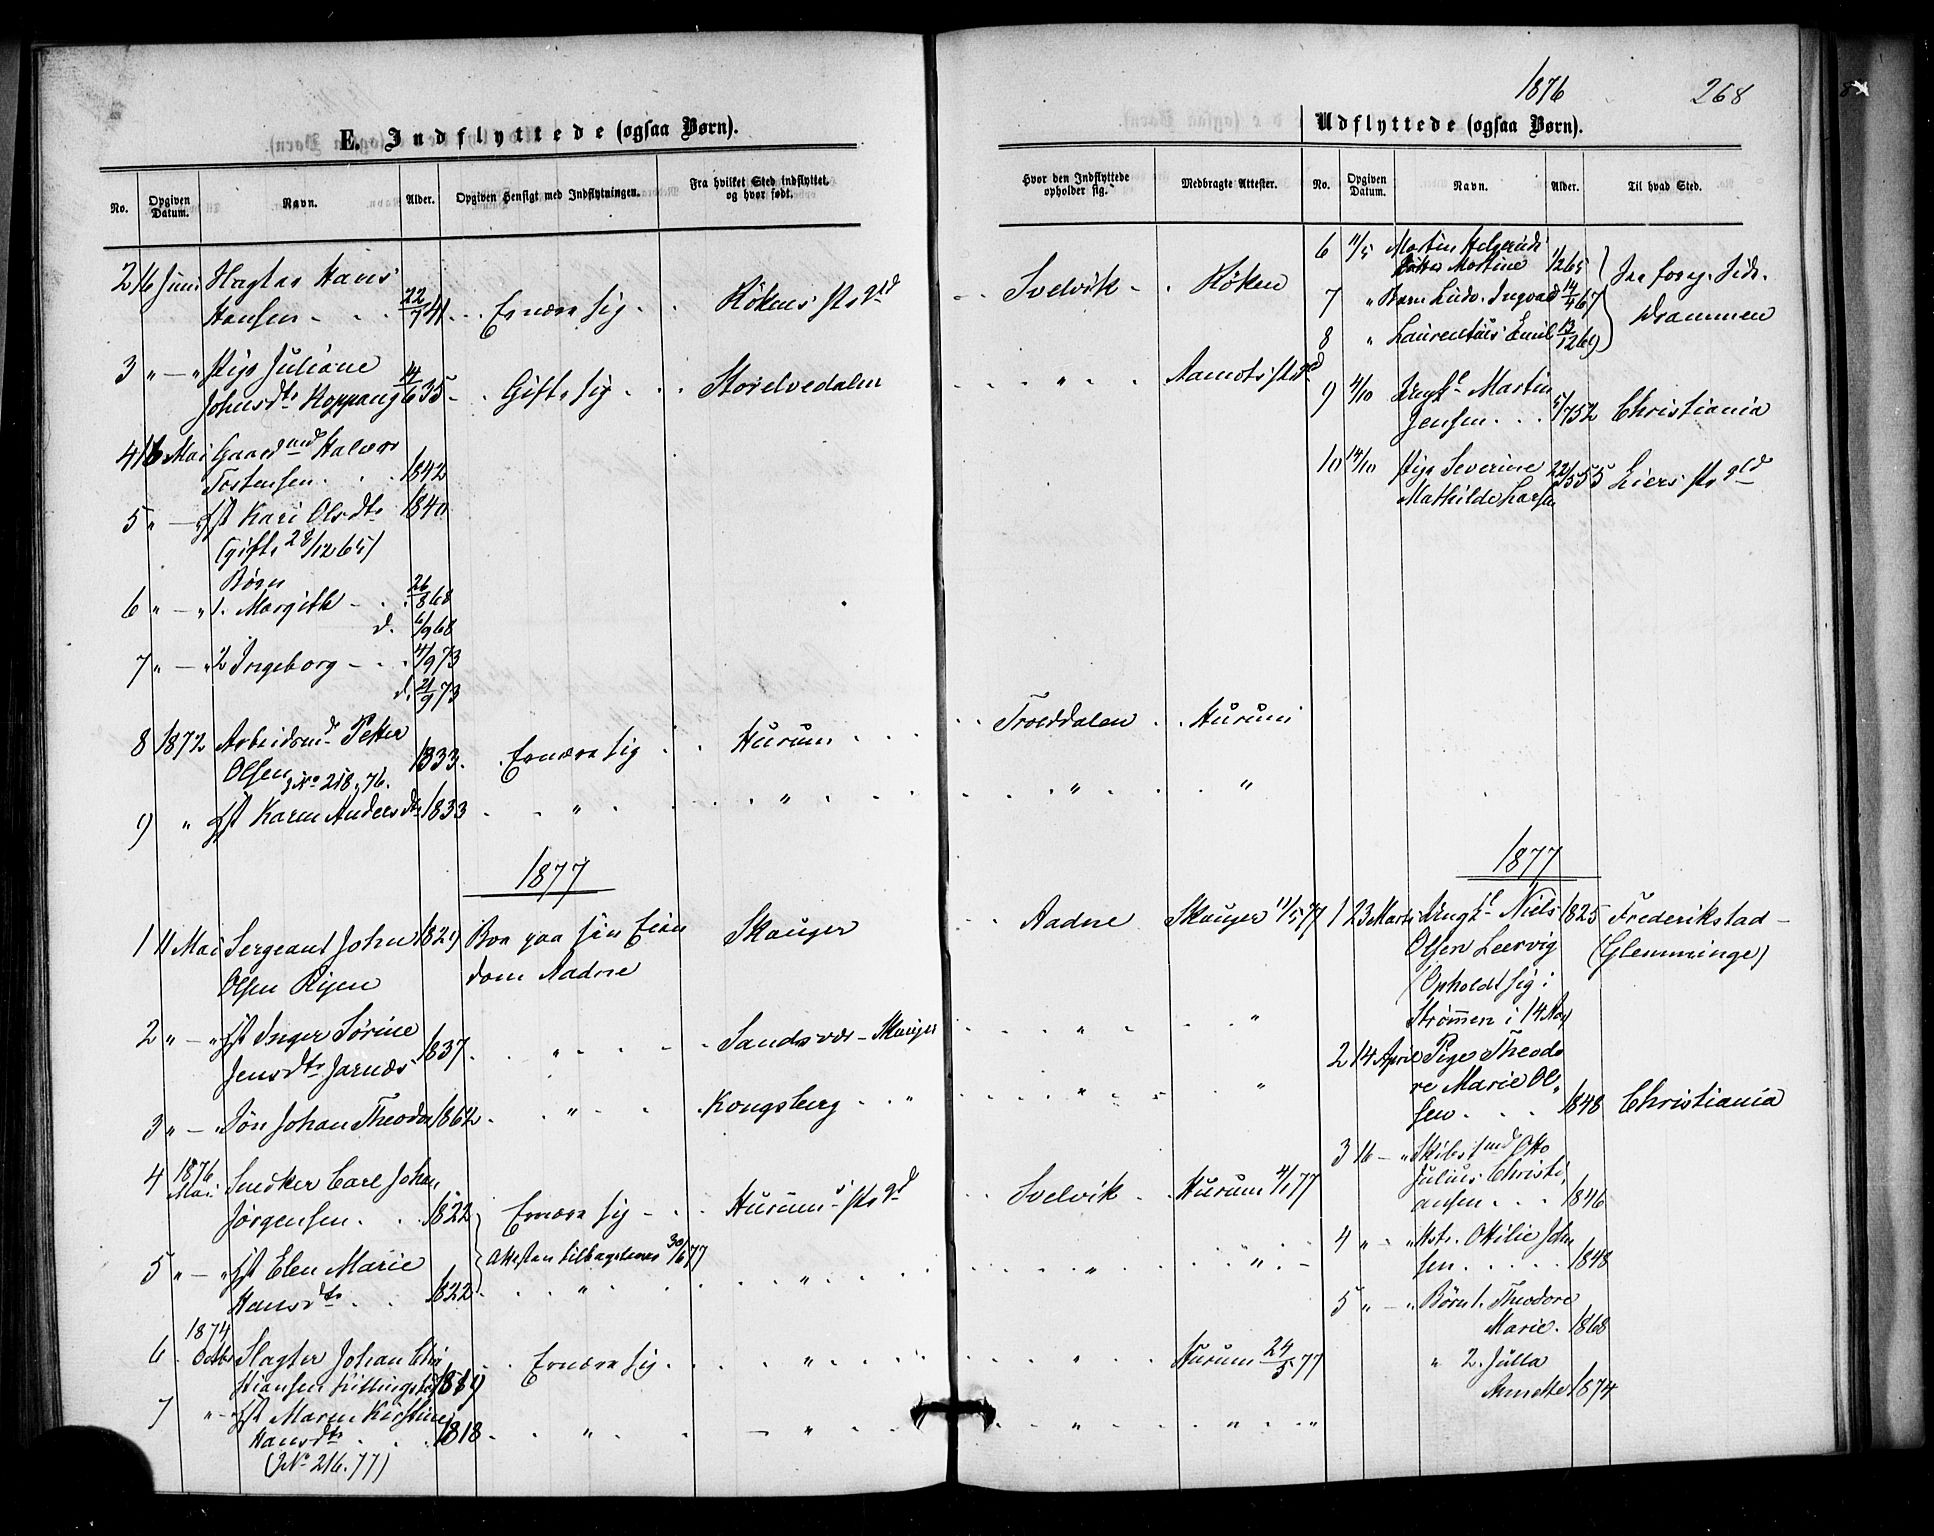 1876
268
E. Indflyttede (ogsaa Børn).
Udflyttede (ogsaa Børn).
No. Opgiven Datum. Navn. Alder. Opgiven Hensigt med Indflytningen. Fra hvilket Sted indflyttet, og hvor født.
Hvor den Indflyttede opholder sig. Medbragte Attester. No. Opgiven Datum. Navn. Alder. Til hvad Sted.
2 16 Juni Slagter Hans
Hansen 22/7 41 Ernære sig Rökens Prgld Svelvik Röken
3 " — " Pige Juliane
Johnsdtr Koppang 14/6 35 Gifte sig Storelvedalen " Aamots Prgld
4 16 Mai Gaardmd Halvor
Tostensen 1842
5 " — " Hst Kari Olsdtr 1840
(gift 28/12 65)
Børn
6 " — " 1. Margith 26/8 68
d. 6/9 68
7 " — " 2 Ingeborg 4/9 73
d. 21/9 73
8 1872 Arbeidsmd Petter
Olsen 1833 Ernære sig Hurum Troeddalen Hurum
No 218, 76.
9 " Hst Karen Andersdtr 1833 " " " "
1877
1 11 Mai Sergeant John 1829 Boe paa sin Eien Skouger Aadne Skouger 11/5 77
Olsen Rijen dom Aadne
2 " — " Hst Inger Sörine
Jensdtr Jarnæs 1837 " Sandsvær - Skouger " "
3 " — " Sön Johan Theodor 1862 " Kongsberg " " "
4 1876 Mai Snedker Carl Johan
Jörgensen 1822 Ernære sig Hurums Prgld Svelvik Hurum 4/1 77
Attesten tilbagelevert 30/6 77
5 " — " Hst Elen Marie
Hansdtr 1822 " " " "
1874
6 Octbr Slagter Johan Chri
stiansen 1819 Ernære sig " " Hurum 24/5 77
7 " — " Hst Maren Kirstine
Hansdtr 1818 " " " " "
(No 216. 77)
6 11/5 Morten Helgerud
Mortine 1265 Fra foreg. Side.
7 " Barn Ludv. Ingvald 14/4 67 Drammen
8 " Laurentius Emil 12/12 69
9 4/10 Ungkl Martin
Jensen 5/7 52 Christiania
10 14/10 Pige Severine 22/5 55 Liers Prgld
Mathilde Larsen
1877
1 23 Marts Ungkl Niels 1825 Frederikstad -
Olsen Leervig (Glemminge)
(Opholdt sig i
Strömmen i 14 Aar)
2 14 April Pige Theodo
re Marie Ol-
sen 1848 Christiania
3 16 — " Skibsfmd Otto
Julius Christi
ansen 1846
4 " — " Hstr. Otilie John
sen 1848
5 " — " Børn 1. Theodore
Marie 1868
" 2. Julla
Annette 1874